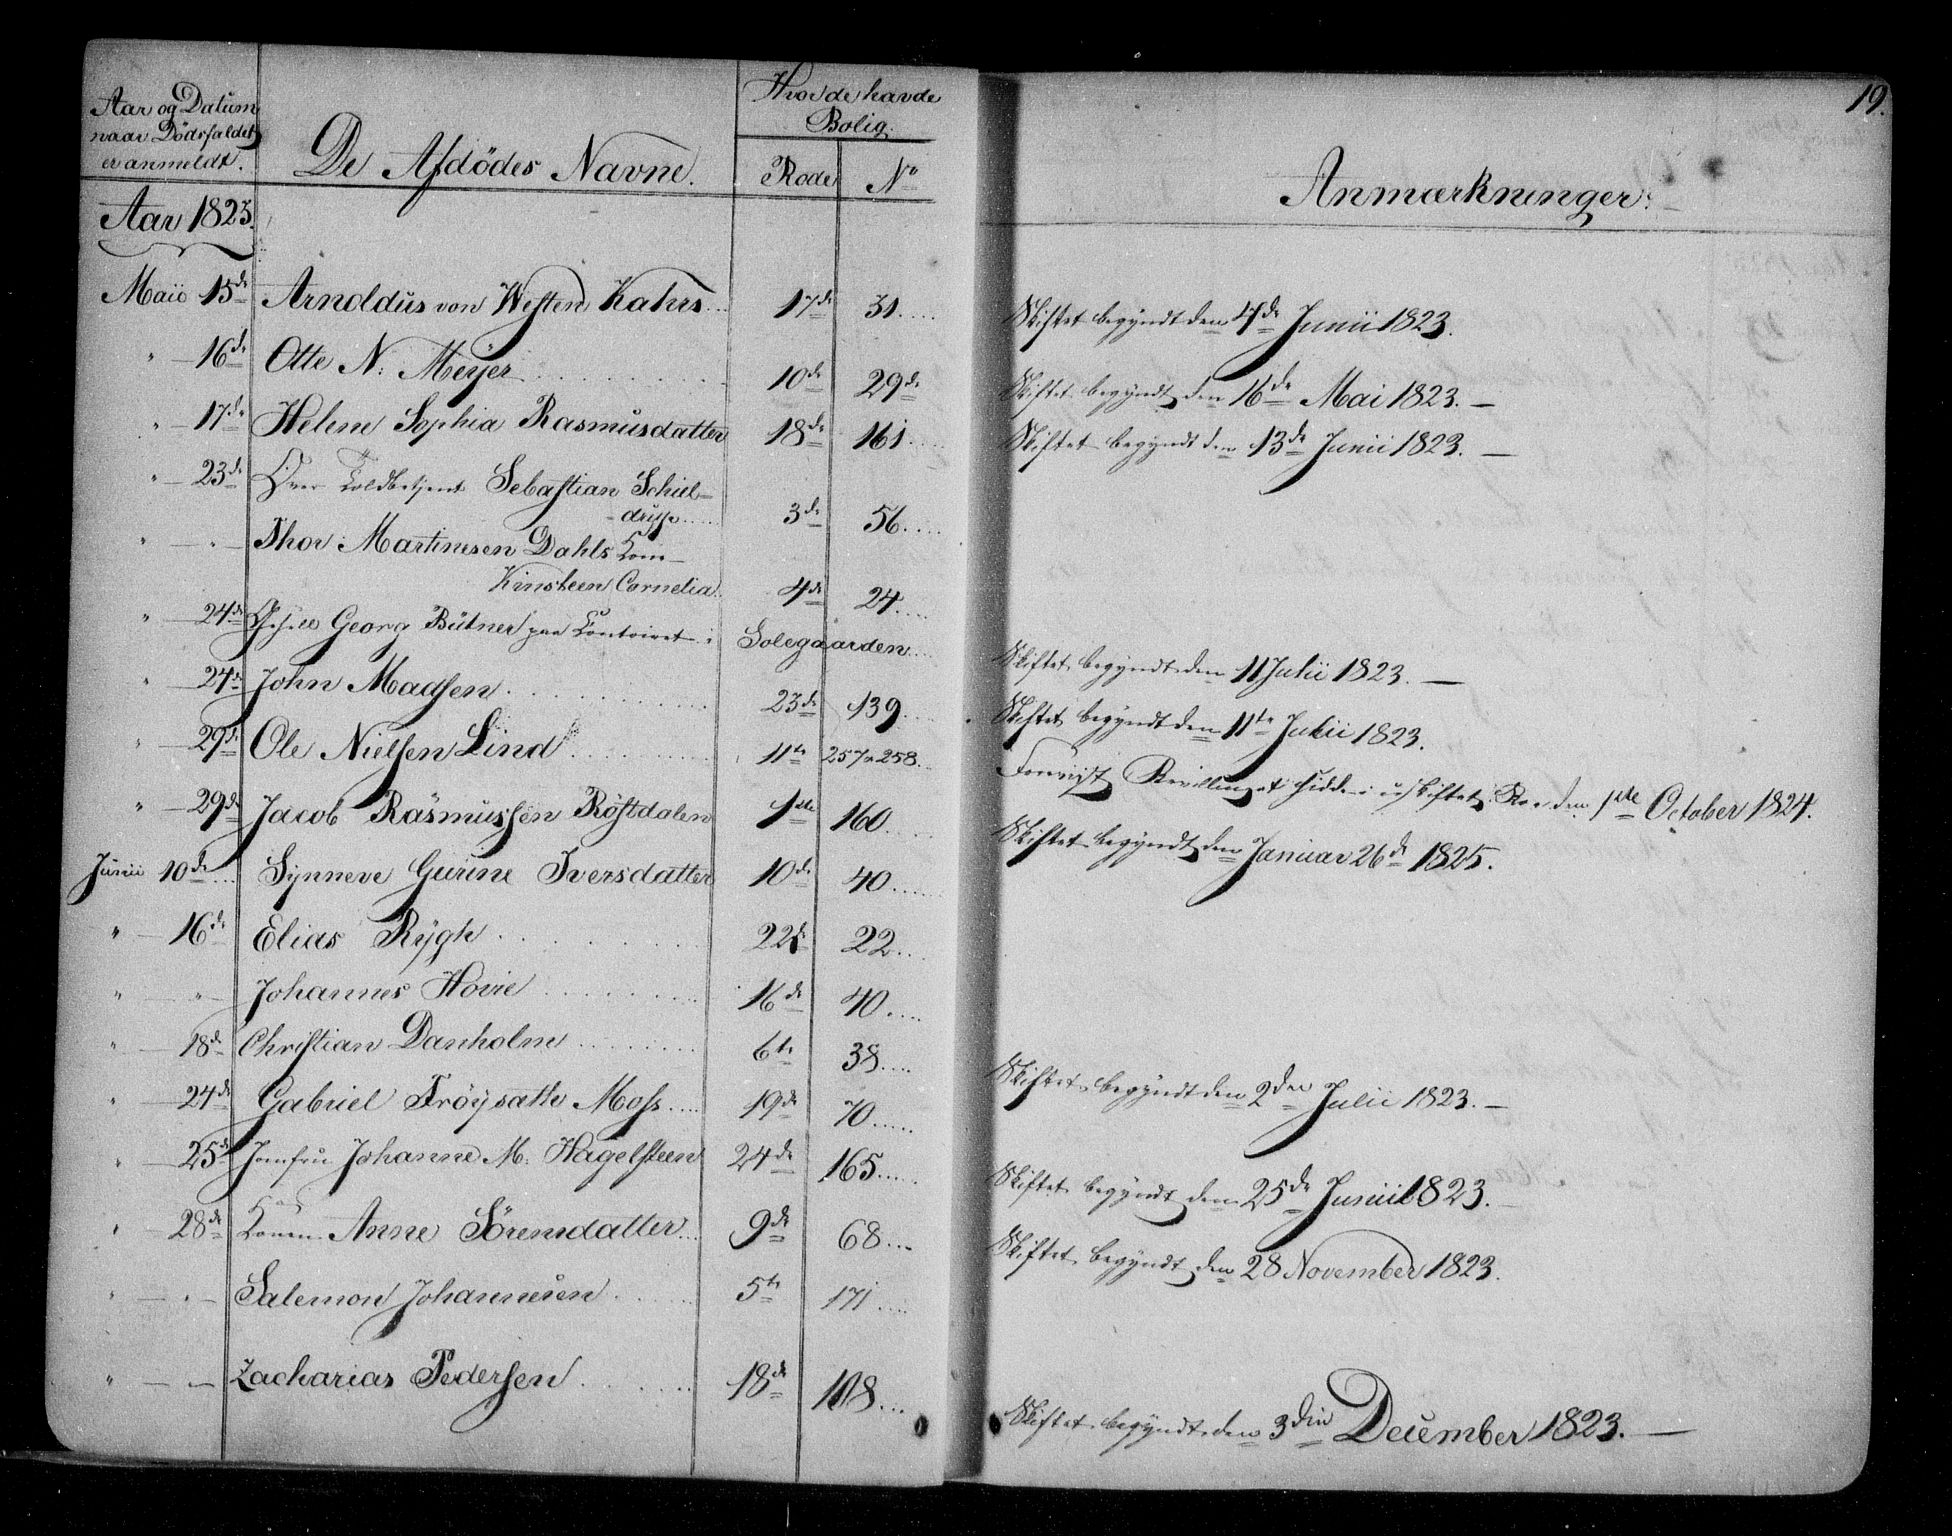 19.
Aar og Datum
naar Dödsfaldet
er anmeldt.
De Afdödes Navne.
Hvor de havde
Bolig.
Rode No
Anmærkninger.
Aar 1823.
Maii 15de Arnoldus von Westen Kahrs... 17de 31.... Skiftet begyndt den 4de Junii 1823.
" — 16de Otte N: Meÿer 10de 29de Skiftet begyndt den 16de Mai 1823. —
" — 17de Helene Sophia Rasmusdatter 18de 161.... Skiftet begyndt den 13de Junii 1823. —
" — 23de Over Toldbetjent Sebastian Schiel-
drup..... 3de 56....
" — " — Thor Martinusen Dahls Kone
Cornelia. 4de 24....
" — 24de Georg Bütner paa Contoiret i Solegaarden....
" — 24de John Madsen 23de 139.... Skiftet begyndt den 11 Julii 1823. —
" — 29de Ole Nielsen Lind 11te 257 & 258... Skiftet begyndt den 11te Julii 1823.
" — 29de Jacob Rasmussen Röstdalen 1ste 160.... den 1ste October 1824.
Junii 10de... Synneve Gurine Iversdatter 10de 40..... Skiftet begyndt den Januar 26de 1825.
" — 16de Elias Rÿgh 22de 22...
" — " — Johannes Hovie 16de 40....
" — 18de Christian Danholm 6te 38....
" — 24de Gabriel Fröysatte Moss.... 19de 70..... Skiftet begyndt den 2den Julii 1823. —
" — 25de Jomfru Johanne M. Hagelsteen 24de 165..... Skiftet begyndt den 25de Junii 1823. —
" — 28de Konen Anne Sörensdatter... 9de 68... Skiftet begyndt den 28 November 1823.
" — " — Salemon Johannesen 5te 171....
" — — Zacharias Pedersen 18de 108... Skiftet begyndt den 3die December 1823. —